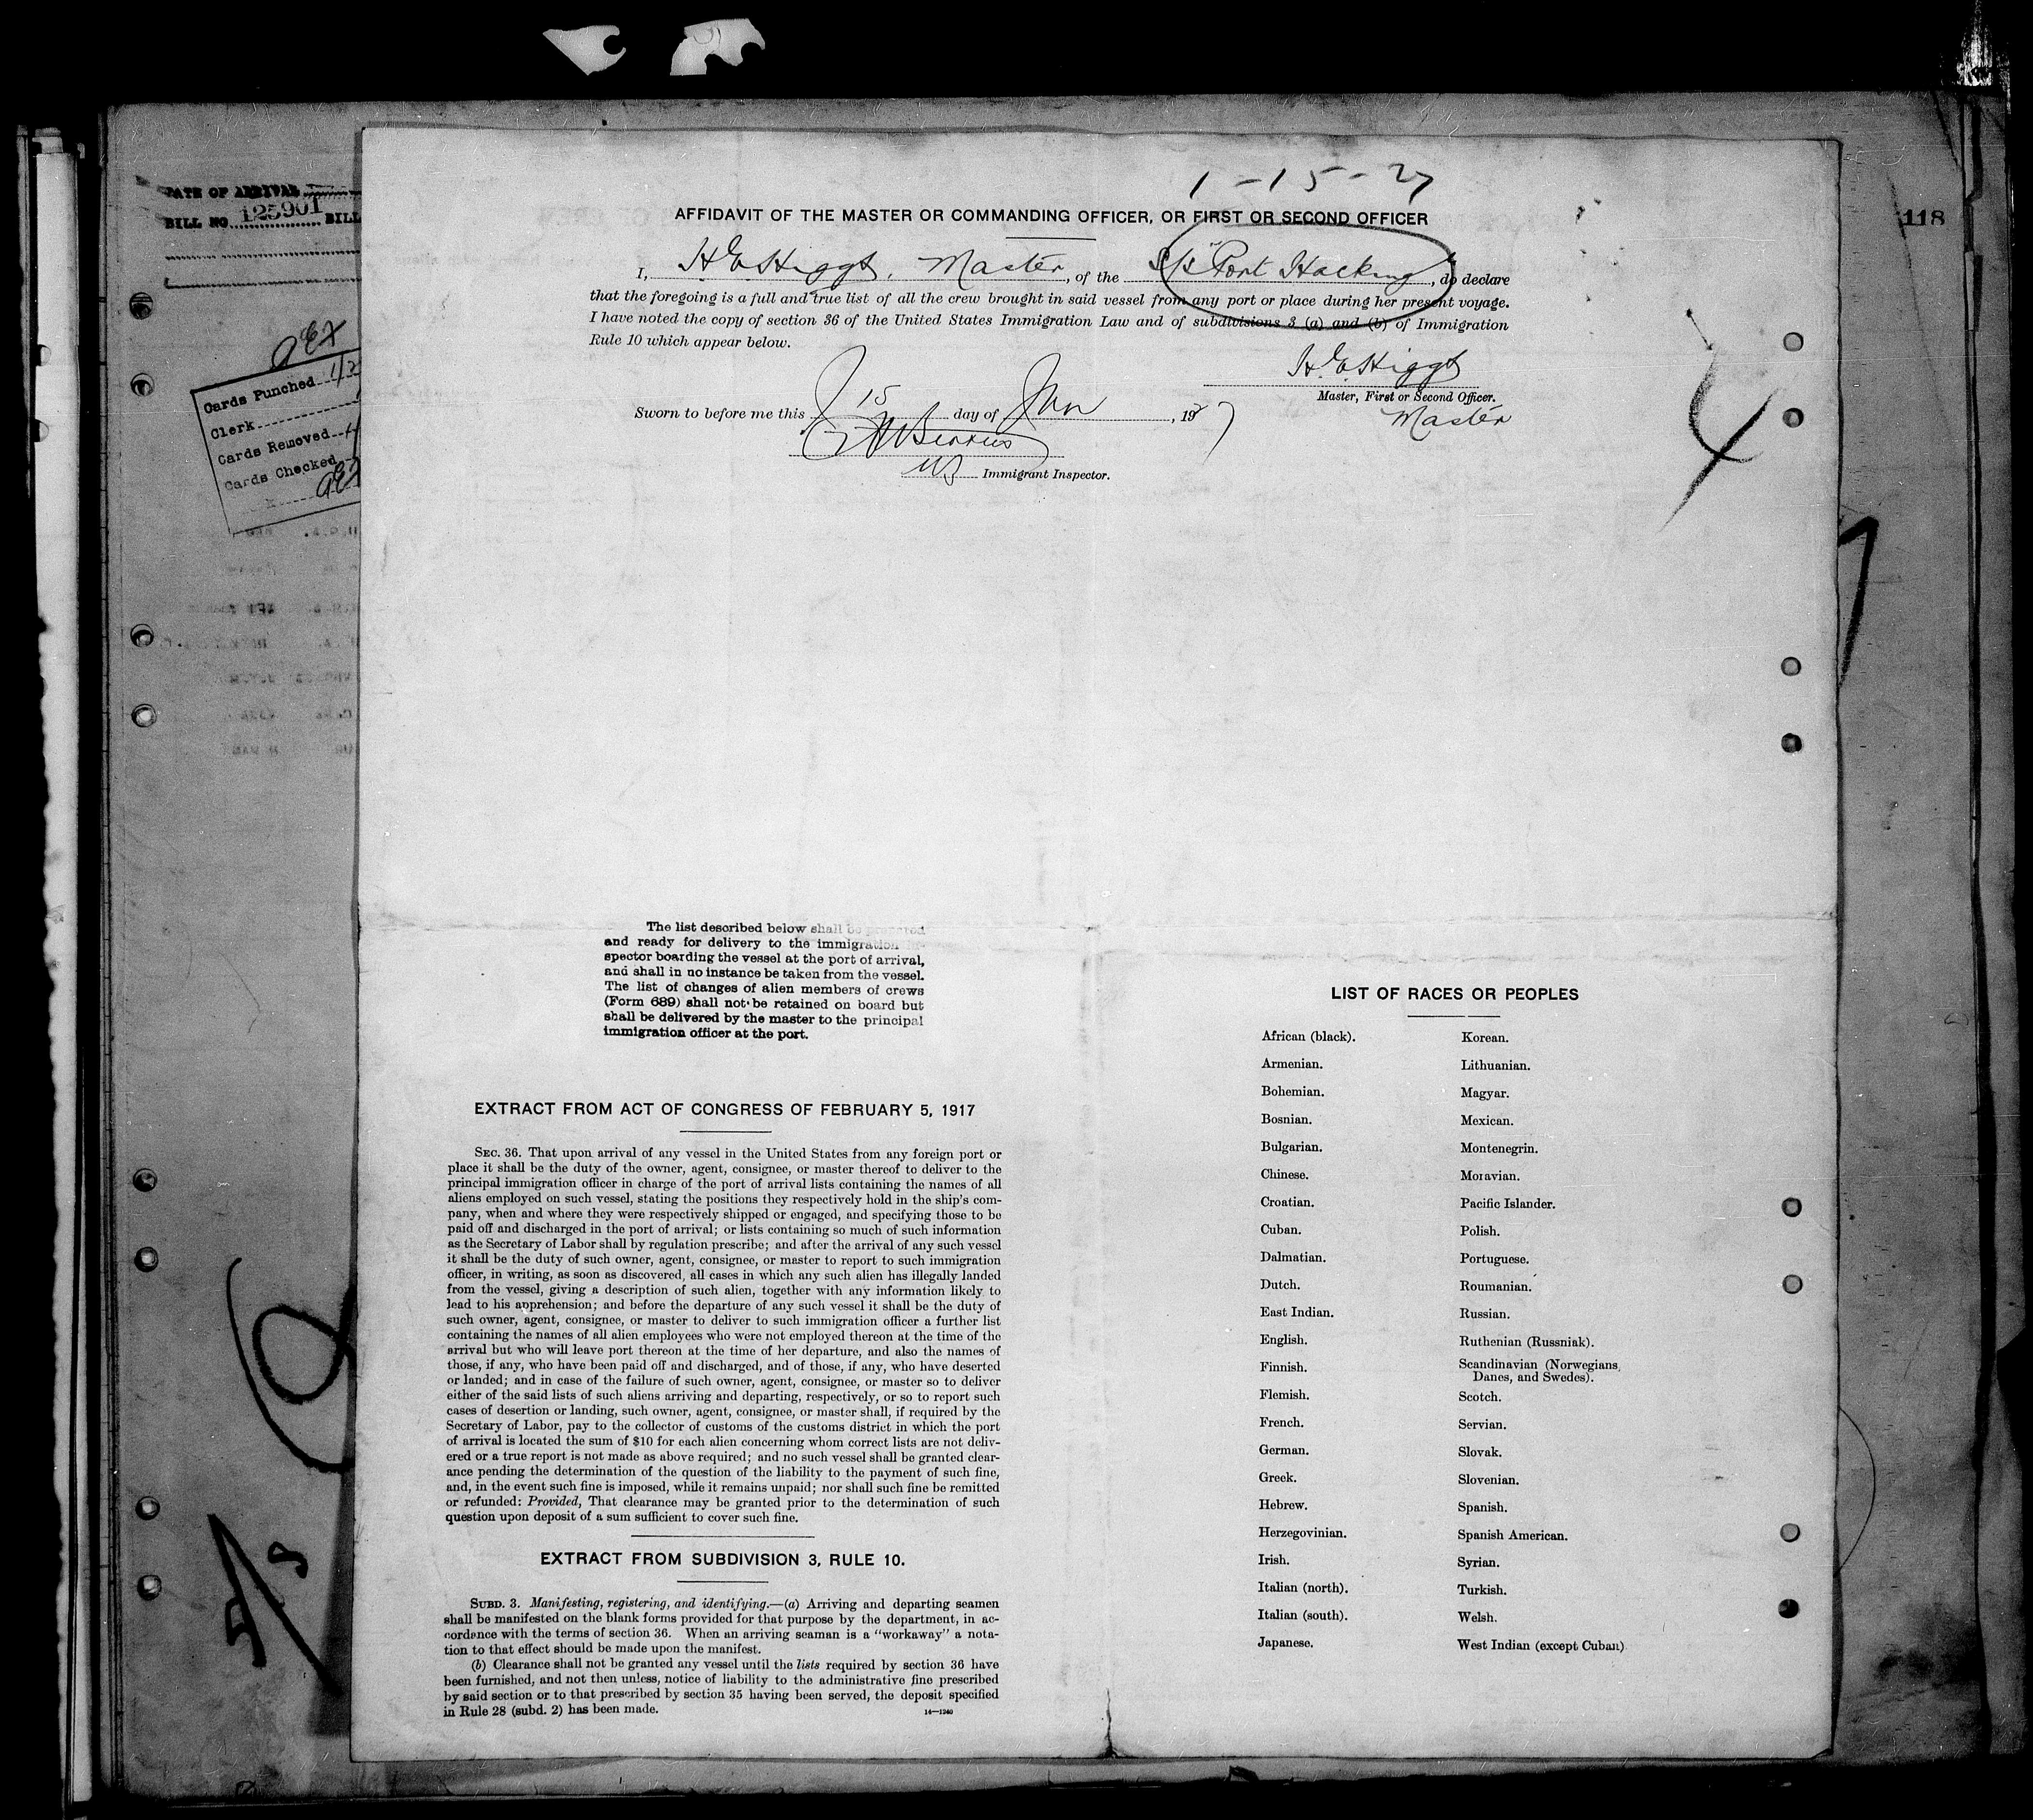 DATE OF ARRIVAL
BILL NO. 125901 BILL
118
Cards Punched 1/2
Clerk
Cards Removed
Cards Checked
1-15-27
AFFIDAVIT OF THE MASTER OR COMMANDING OFFICER, OR FIRST OR SECOND OFFICER
I, H E Higgs, Master, of the S/S "Port Hacking", do declare
that the foregoing is a full and true list of all the crew brought in said vessel from any port or place during her present voyage.
I have noted the copy of section 36 of the United States Immigration Law and of subdivisions 3 (a) and (b) of Immigration
Rule 10 which appear below.
H E Higgs
Master, First or Second Officer.
Master
Sworn to before me this 15 day of Jan, 1927
US Immigrant Inspector.
4
The list described below shall be prepared
and ready for delivery to the immigration in-
spector boarding the vessel at the port of arrival,
and shall in no instance be taken from the vessel.
The list of changes of alien members of crews
(Form 689) shall not be retained on board but
shall be delivered by the master to the principal
immigration officer at the port.
EXTRACT FROM ACT OF CONGRESS OF FEBRUARY 5, 1917
SEC. 36. That upon arrival of any vessel in the United States from any foreign port or
place it shall be the duty of the owner, agent, consignee, or master thereof to deliver to the
principal immigration officer in charge of the port of arrival lists containing the names of all
aliens employed on such vessel, stating the positions they respectively hold in the ship's com-
pany, when and where they were respectively shipped or engaged, and specifying those to be
paid off and discharged in the port of arrival; or lists containing so much of such information
as the Secretary of Labor shall by regulation prescribe; and after the arrival of any such vessel
it shall be the duty of such owner, agent, consignee, or master to report to such immigration
officer, in writing, as soon as discovered, all cases in which any such alien has illegally landed
from the vessel, giving a description of such alien, together with any information likely to
lead to his apprehension; and before the departure of any such vessel it shall be the duty of
such owner, agent, consignee, or master to deliver to such immigration officer a further list
containing the names of all alien employees who were not employed thereon at the time of the
arrival but who will leave port thereon at the time of her departure, and also the names of
those, if any, who have been paid off and discharged, and of those, if any, who have deserted
or landed; and in case of the failure of such owner, agent, consignee, or master so to deliver
either of the said lists of such aliens arriving and departing, respectively, or so to report such
cases of desertion or landing, such owner, agent, consignee, or master shall, if required by the
Secretary of Labor, pay to the collector of customs of the customs district in which the port
of arrival is located the sum of $10 for each alien concerning whom correct lists are not deliv-
ered or a true report is not made as above required; and no such vessel shall be granted clear-
ance pending the determination of the question of the liability to the payment of such fine,
and, in the event such fine is imposed, while it remains unpaid; nor shall such fine be remitted
or refunded: Provided, That clearance may be granted prior to the determination of such
question upon deposit of a sum sufficient to cover such fine.
EXTRACT FROM SUBDIVISION 3, RULE 10.
SUBD. 3. Manifesting, registering, and identifying.—(a) Arriving and departing seamen
shall be manifested on the blank forms provided for that purpose by the department, in ac-
cordance with the terms of section 36. When an arriving seaman is a "workaway" a nota-
tion to that effect should be made upon the manifest.
(b) Clearance shall not be granted any vessel until the lists required by section 36 have
been furnished, and not then unless, notice of liability to the administrative fine prescribed
by said section or to that prescribed by section 35 having been served, the deposit specified
in Rule 28 (subd. 2) has been made.
14—1240
LIST OF RACES OR PEOPLES
African (black). Korean.
Armenian. Lithuanian.
Bohemian. Magyar.
Bosnian. Mexican.
Bulgarian. Montenegrin.
Chinese. Moravian.
Croatian. Pacific Islander.
Cuban. Polish.
Dalmatian. Portuguese.
Dutch. Roumanian.
East Indian. Russian.
English. Ruthenian (Russniak).
Finnish. Scandinavian (Norwegians,
Danes, and Swedes).
Flemish. Scotch.
French. Servian.
German. Slovak.
Greek. Slovenian.
Hebrew. Spanish.
Herzegovinian. Spanish American.
Irish. Syrian.
Italian (north). Turkish.
Italian (south). Welsh.
Japanese. West Indian (except Cuban)